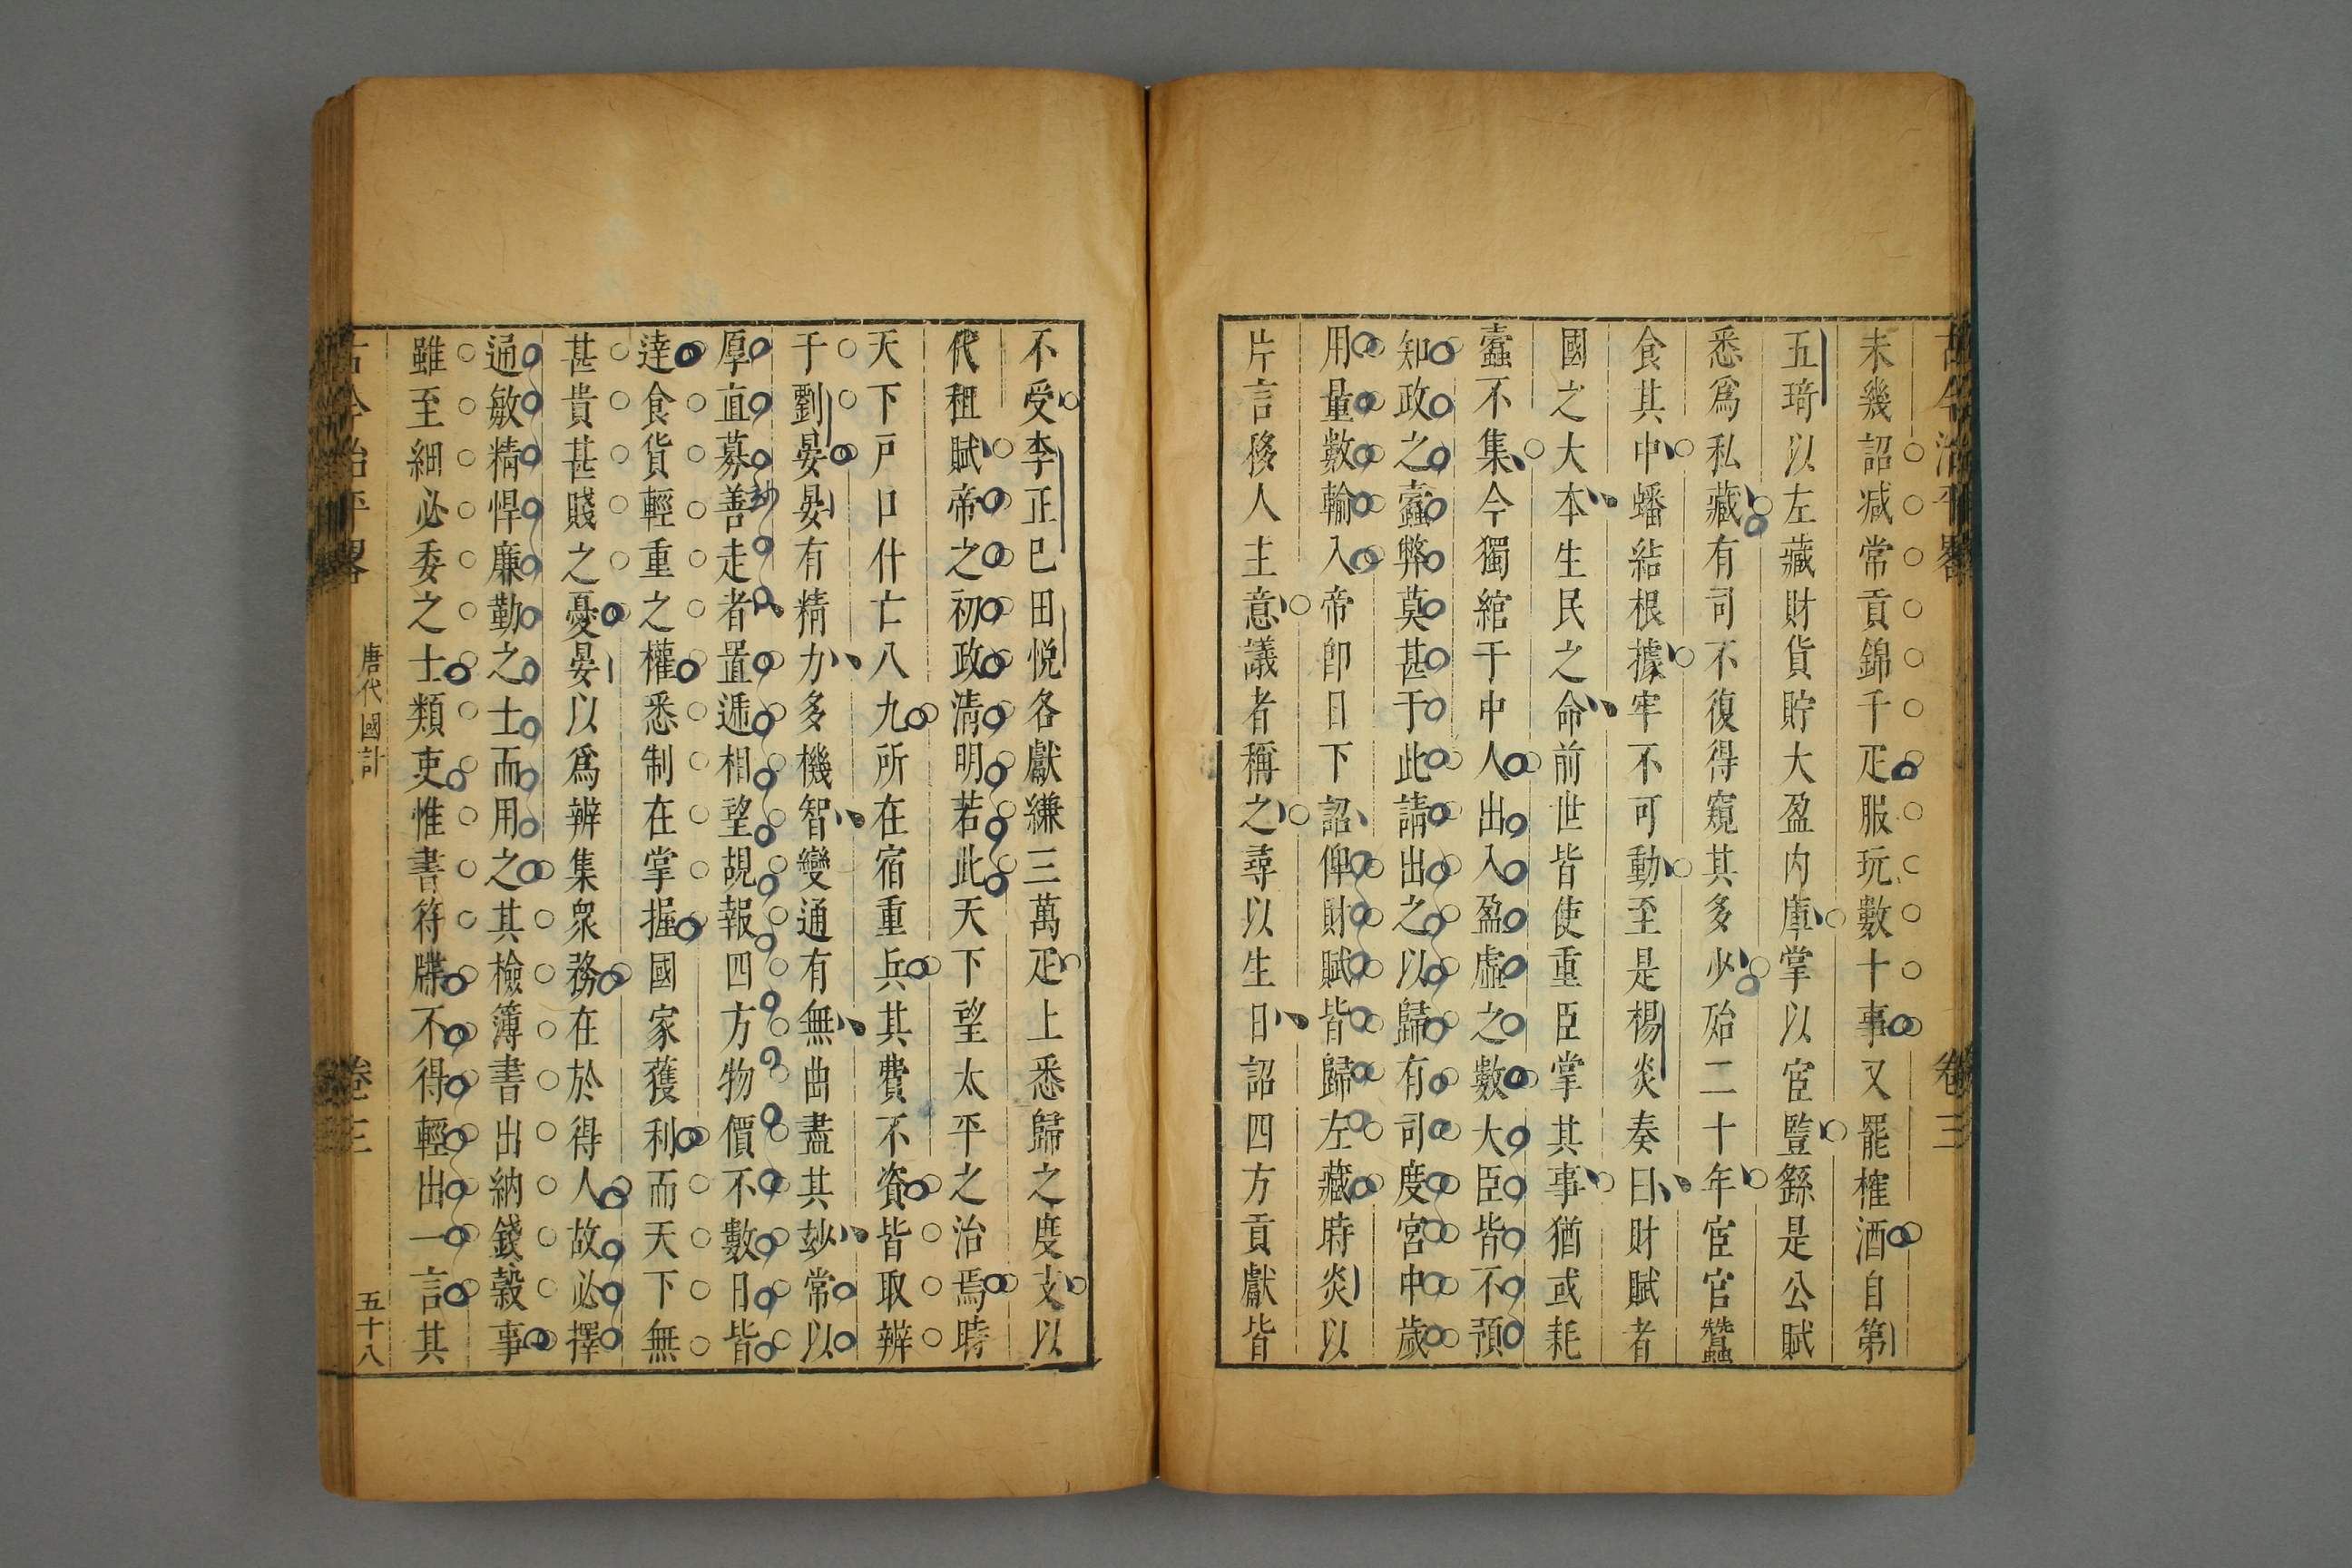 古今治平畧 卷三
未幾詔減常貢錦千疋服玩數十事又罷榷酒自第
五琦以左藏財貨貯大盈内庫掌以宦監繇是公賦
悉爲私藏有司不復得窺其多少殆二十年宦官蠶
食其中蟠結根據牢不可動至是楊炎奏曰財賦者
國之大本生民之命前世皆使重臣掌其事猶或耗
蠹不集今獨綰于中人出入盈虛之數大臣皆不預
知政之蠹弊莫甚于此請出之以歸有司度宮中歲
用量數輸入帝卽日下詔仰財賦皆歸左藏時炎以
片言移人主意議者稱之尋以生日詔四方貢獻皆
不受李正巳田悅各獻縑三萬疋上悉歸之度支以
代租賦帝之初政清明若此天下望太平之治焉時
天下戸口什亡八九所在宿重兵其費不資皆取辨
于劉晏晏有精力多機智變通有無曲盡其玅常以
厚直募善走者置遞相望覘報四方物價不數日皆
達食貨輕重之權悉制在掌握國家獲利而天下無
甚貴甚賤之憂晏以爲辨集衆務在於得人故必擇
通敏精悍廉勤之士而用之其檢簿書出納錢穀事
雖至細必委之士類吏惟書符牒不得輕出一言其
古今治平畧 唐代國計 卷三 五十八